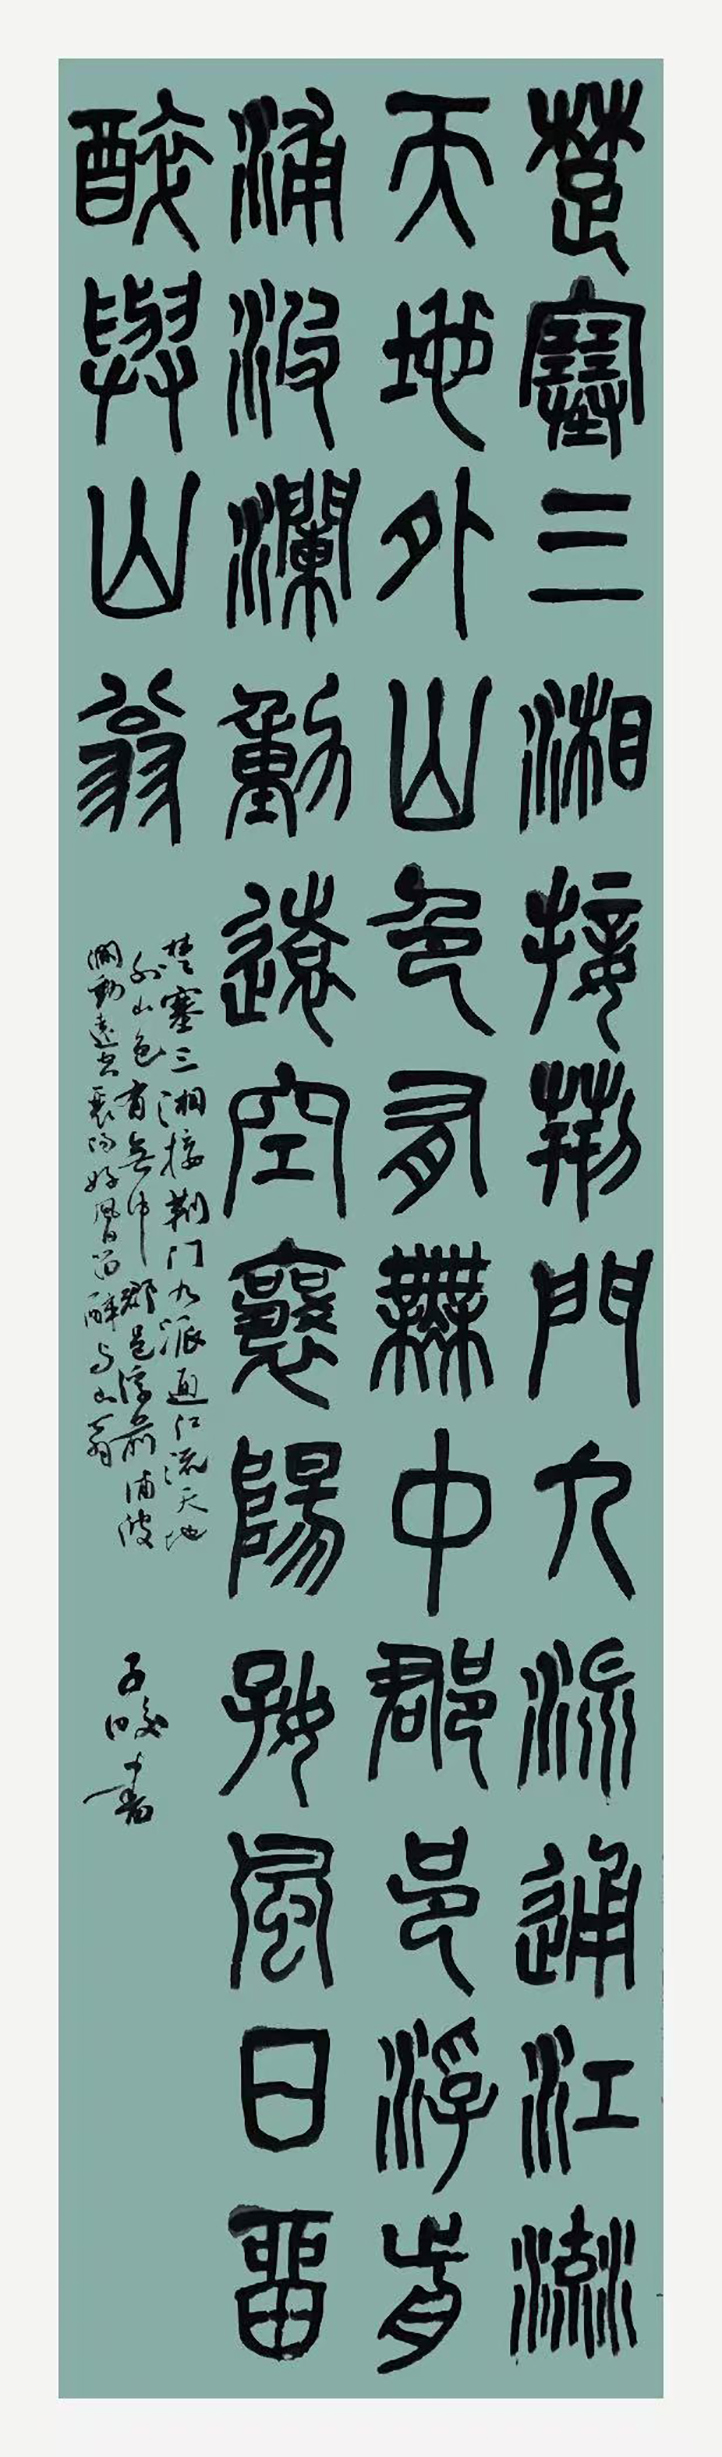 楚塞三湘接荊門九派通江流
天地外山色有無中郡邑浮前
浦波瀾動遠空襄陽好風日留
醉與山翁
楚塞三湘接荆门九派通江流天地
外山色有無中郡邑浮前浦波
瀾動遠空襄陽好風日留醉与山翁
子晙書